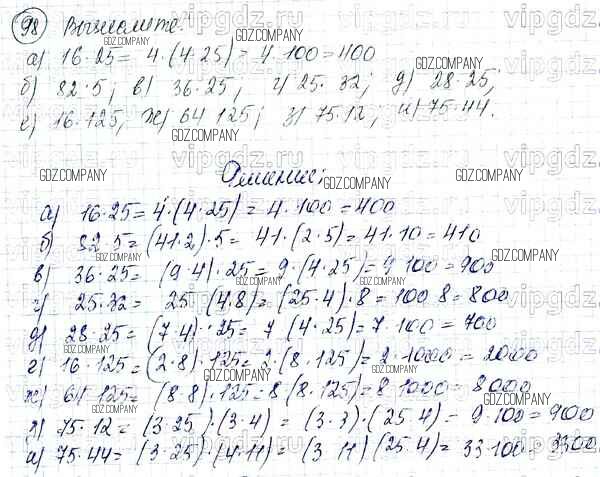 98 Вычислите:
а) 16·25 = 4·(4·25) = 4·100 = 400
б) 82·5; в) 36·25; г) 25·32; д) 28·25;
е) 16·125; ж) 64 125; з) 75·12; и) 75·44.
Решение:
а) 16·25 = 4·(4·25) = 4·100 = 400
б) 82 5 = (41·2)·5 = 41·(2·5) = 41·10 = 410
в) 36·25 = (9·4)·25 = 9·(4·25) = 9 100 = 900
г) 25·32 = 25 (4·8) = (25·4)·8 = 100 8 = 800
д) 28·25 = (7·4)·25 = 7 (4·25) = 7·100 = 700
г) 16·125 = (2·8)·125 = 2·(8·125) = 2·1000 = 2000
ж) 64 125 = (8·8)·125 = 8 (8·125) = 8 1000 = 8000
з) 75·12 = (3·25)·(3·4) = (3·3)·(25 4) = 9·100 = 900
и) 75·44 = (3·25)·(4·11) = (3 11)(25·4) = 33·100 = 3300
GDZ.COMPANY
vipgdz.ru